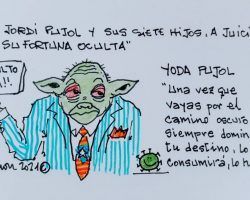 JORDI PUJOL Y SUS SIETE HIJOS, A JUICI
SU FORTUNA OCULTA"
ULTO
!!.
YODA PUJOL
"Una vez que
vayas por el
camino oscuro
siempre domin
tu destino, lo
consumirá, lo h
2021©